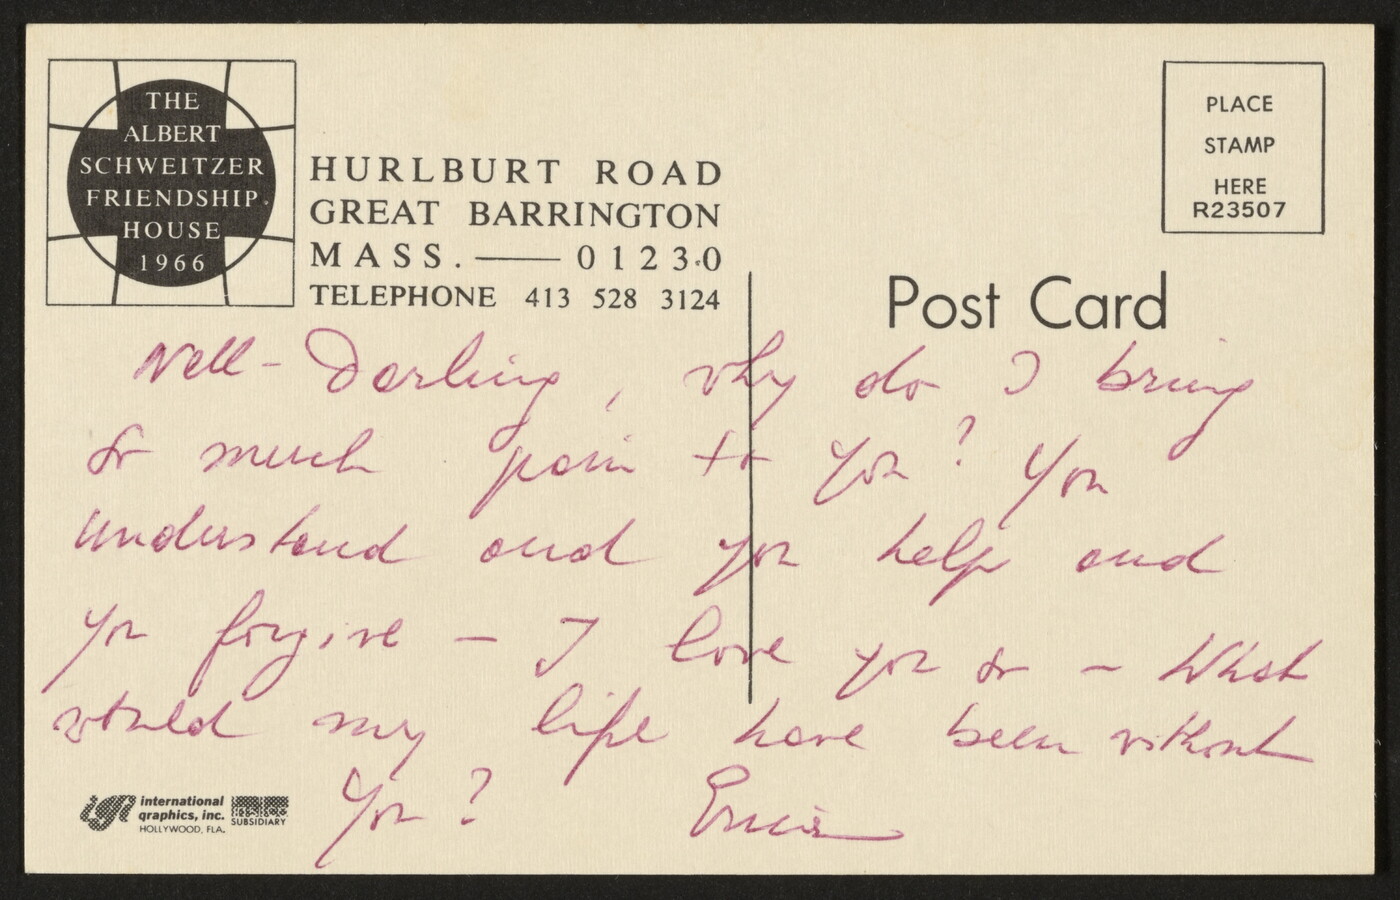 THE
ALBERT
SCHWEITZER
FRIENDSHIP
HOUSE
1966
HURLBURT ROAD
GREAT BARRINGTON
MASS. — 01230
TELEPHONE 413 528 3124
PLACE
STAMP
HERE
R23507
Post Card
Nell - Darling, why do I bring
so much pain to you? You
understand and you help and
you forgive — I love you so — What
would my life have been without
you?
international
graphics, inc.
HOLLYWOOD, FLA.
SUBSIDIARY